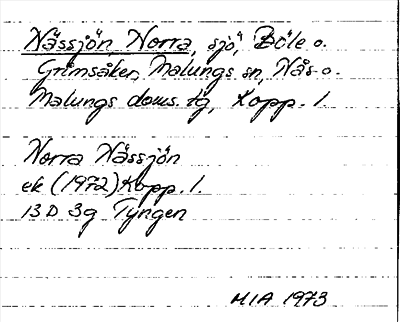 Nässjön, Norra, sjö, Böle o.
Grimsåker, Malungs sn, Nås o.
Malungs doms. tg, Kopp. l.
Norra Nässjön
ek (1972) Kopp. l.
13 D 3g Tyngen
MIA 1973